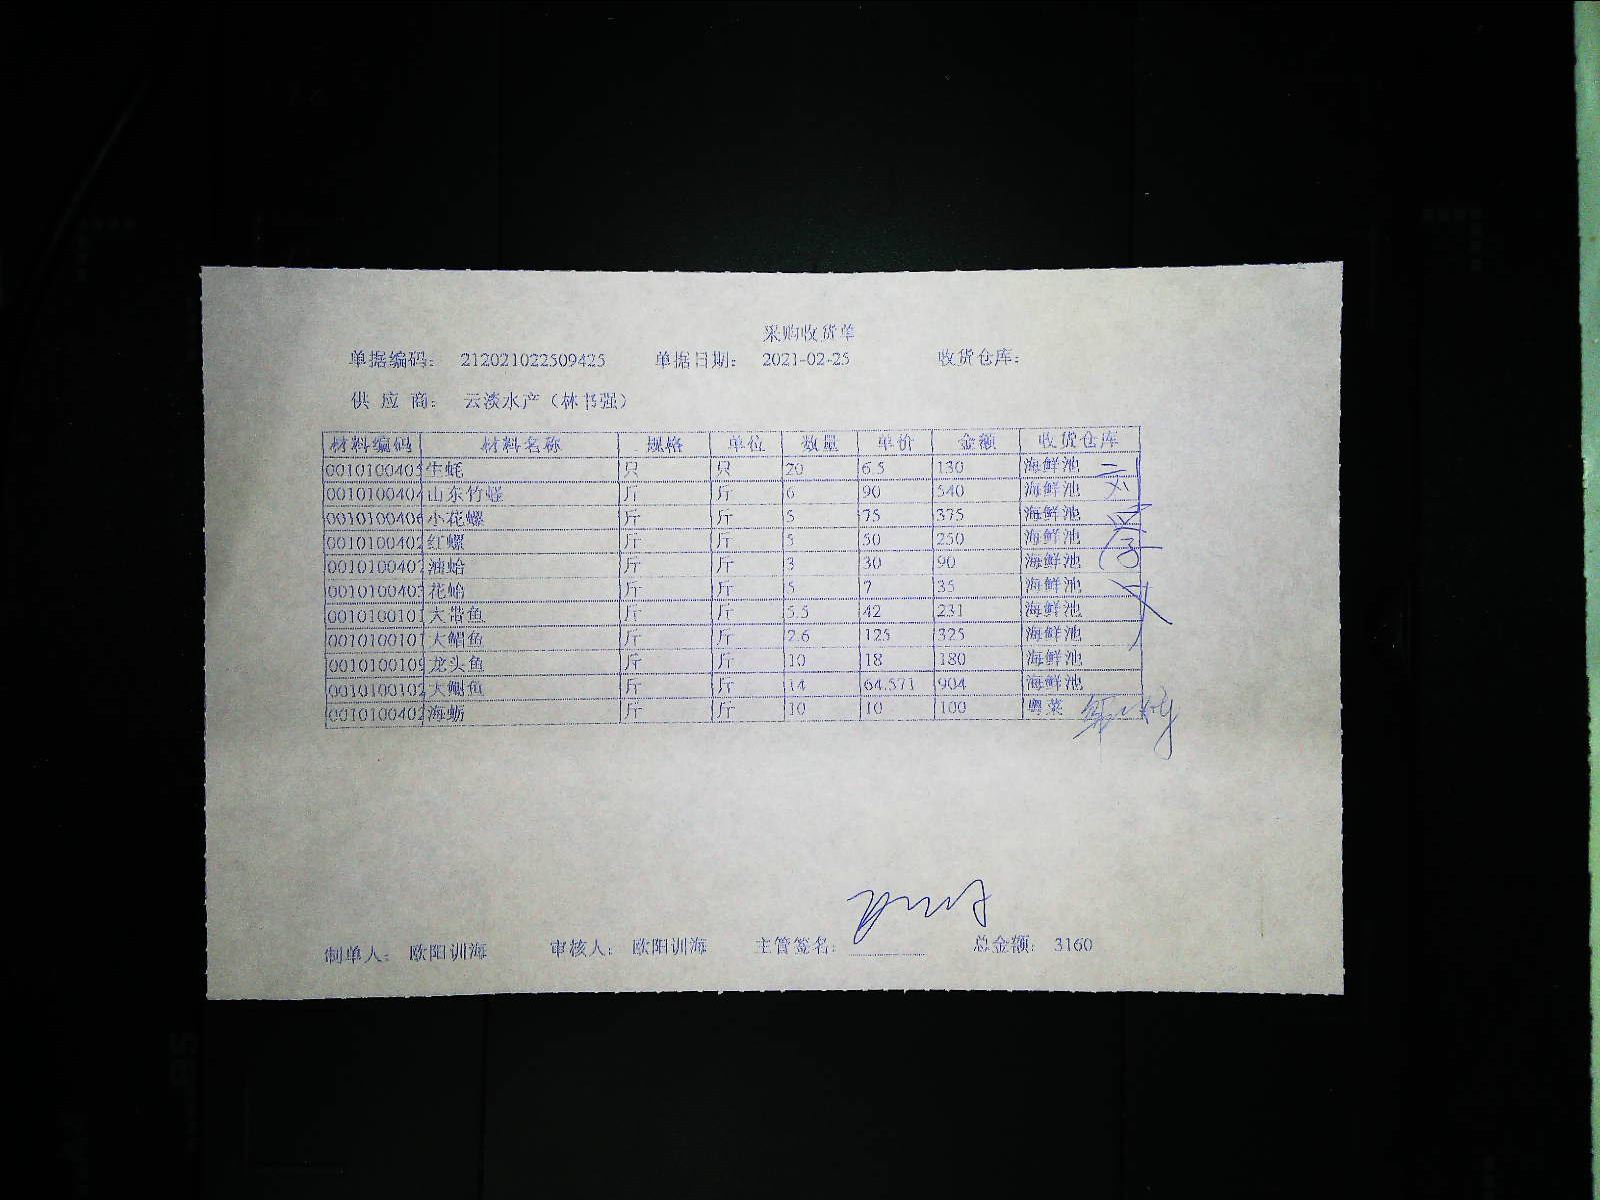 采购收货单
单据编码: 212021022509425 单据日期: 2021-02-25 收货仓库:
供 应 商: 云淡水产(林书强)
材料编码 材料名称 规格 单位 数量 单价 金额 收货仓库
0010100405 生蚝 只 只 20 6.5 130 海鲜池
0010100404 山东竹蛏 斤 斤 6 90 540 海鲜池
0010100406 小花螺 斤 斤 5 75 375 海鲜池
0010100402 红螺 斤 斤 5 50 250 海鲜池
001010040 油蛤 斤 斤 3 30 90 海鲜池
001010040 花蛤 斤 斤 5 7 35 海鲜池
0010100101 大带鱼 斤 斤 5.5 42 231 海鲜池
0010100101 大鲳鱼 斤 斤 2.6 125 325 海鲜池
0010100109 龙头鱼 斤 斤 10 18 180 海鲜池
0010100102 斤 斤 14 64.571 904 海鲜池
0010100402 海蛎 斤 斤 10 10 100 粤菜
制单人: 欧阳训海 审核人: 欧阳训海 主管签名: 总金额: 3160